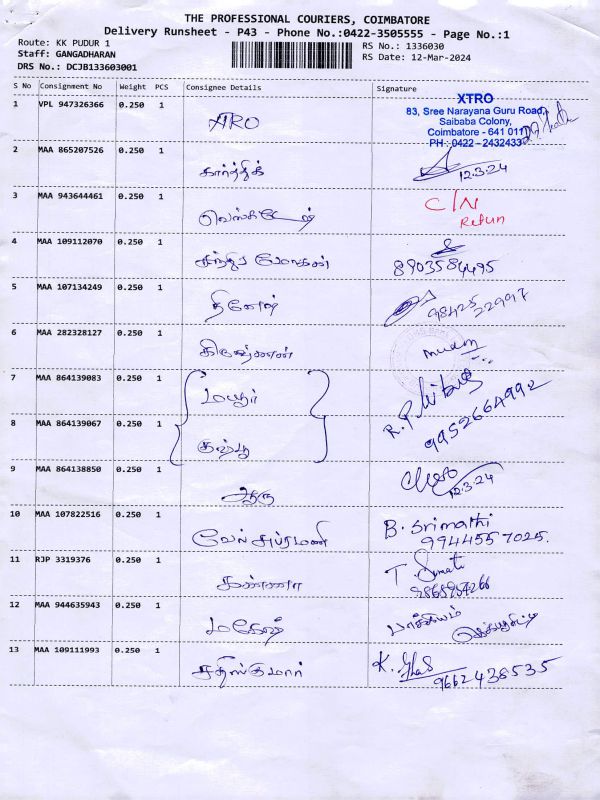 THE PROFESSIONAL COURIERS, COIMBATORE
Delivery Runsheet - P43 - Phone No.:0422-3505555 - Page No.:1
Route: KK PUDUR 1
RS No.: 1336030
Staff: GANGADHARAN
RS Date: 12-Mar-2024
DRS No.: DCJB133603001
S No Consignment No Weight PCS Consignee Details Signature
1 VPL 947326366 0.250 1
XTRO
83, Sree Narayana Guru Road,
Saibaba Colony,
Coimbatore - 641 011
PH : 0422 - 2432433
2 MAA 865207526 0.250 1 கார்த்திக் 12.3.24
3 MAA 943644461 0.250 1 C/N
Return
4 MAA 109112070 0.250 1 8903584495
5 MAA 107134249 0.250 1 தினேஷ் 98425 22997
6 MAA 282328127 0.250 1
7 MAA 864139083 0.250 1 மயூர்
8 MAA 864139067 0.250 1 9952664992
9 MAA 864138850 0.250 1 12.3.24
10 MAA 107822516 0.250 1 வேல்சுப்ரமணி B. Srimathi
9944557025.
11 RJP 3319376 0.250 1 கண்ணா T. Sumati
12 MAA 944635943 0.250 1 மகேஷ் பாக்கியம்
13 MAA 109111993 0.250 1 சதிஸ்குமார் K.
9662438535